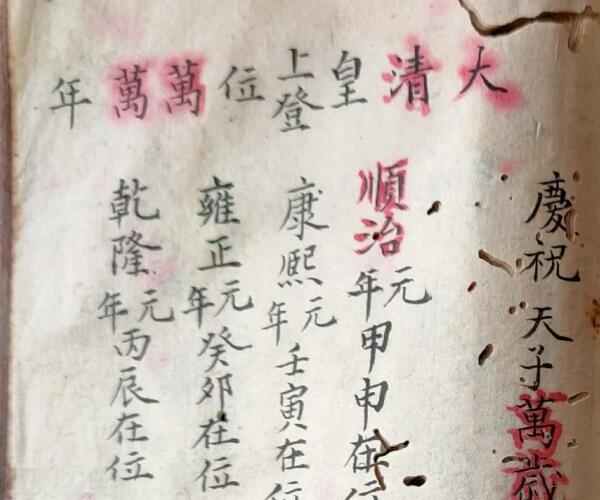 慶祝天子萬歲
大清皇上登位萬萬年
順治元年甲申在位
康熙元年壬寅在位
雍正元年癸卯在位
乾隆元年丙辰在位